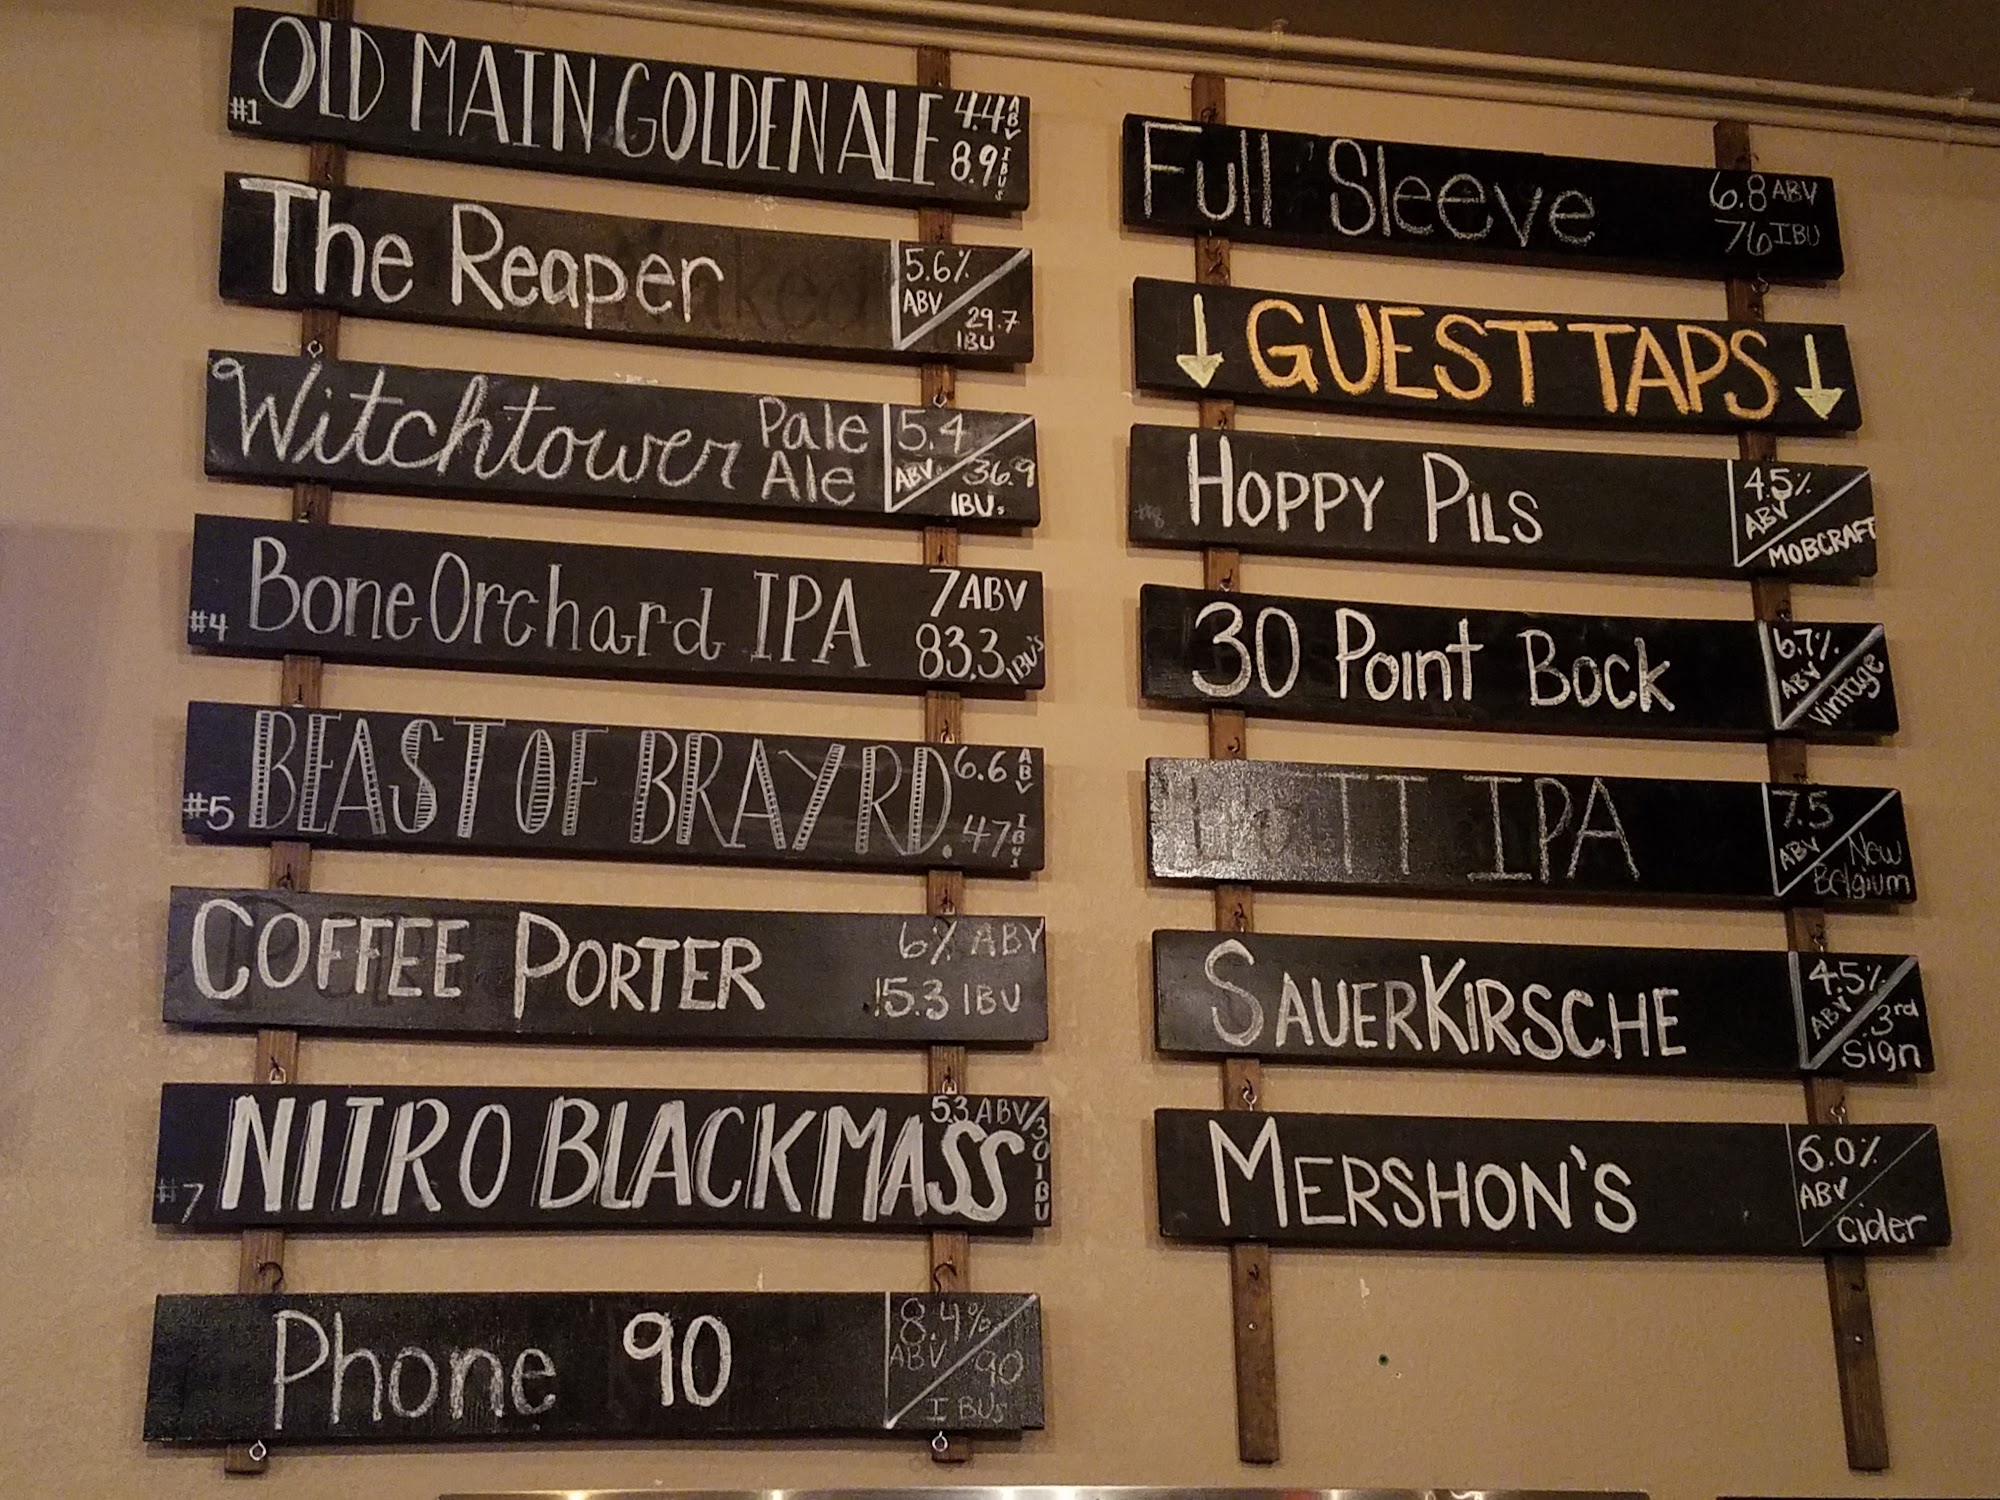 #1 OLD MAIN GOLDEN ALE 4.4 ABV
8.9 IBUs
The Reaper 5.6% ABV
29.7 IBU
Witchtower Pale Ale 5.4 ABV
36.9 IBUs
#4 Bone Orchard IPA 7 ABV
83.3 IBU's
#5 BEAST OF BRAY RD. 6.6 ABV
47 IBUs
COFFEE PORTER 6% ABV
15.3 IBU
#7 NITRO BLACK MASS 5.3 ABV/30 IBU
Phone 90 8.4% ABV
90 IBUs
Full Sleeve 6.8 ABV
76 IBU
↓ GUEST TAPS ↓
#8 HOPPY PILS 4.5% ABV
MOBCRAFT
30 POINT BOCK 6.7% ABV
Vintage
IPA 7.5 ABV
New Belgium
SAUERKIRSCHE 4.5% ABV
3rd Sign
MERSHON'S 6.0% ABV
cider